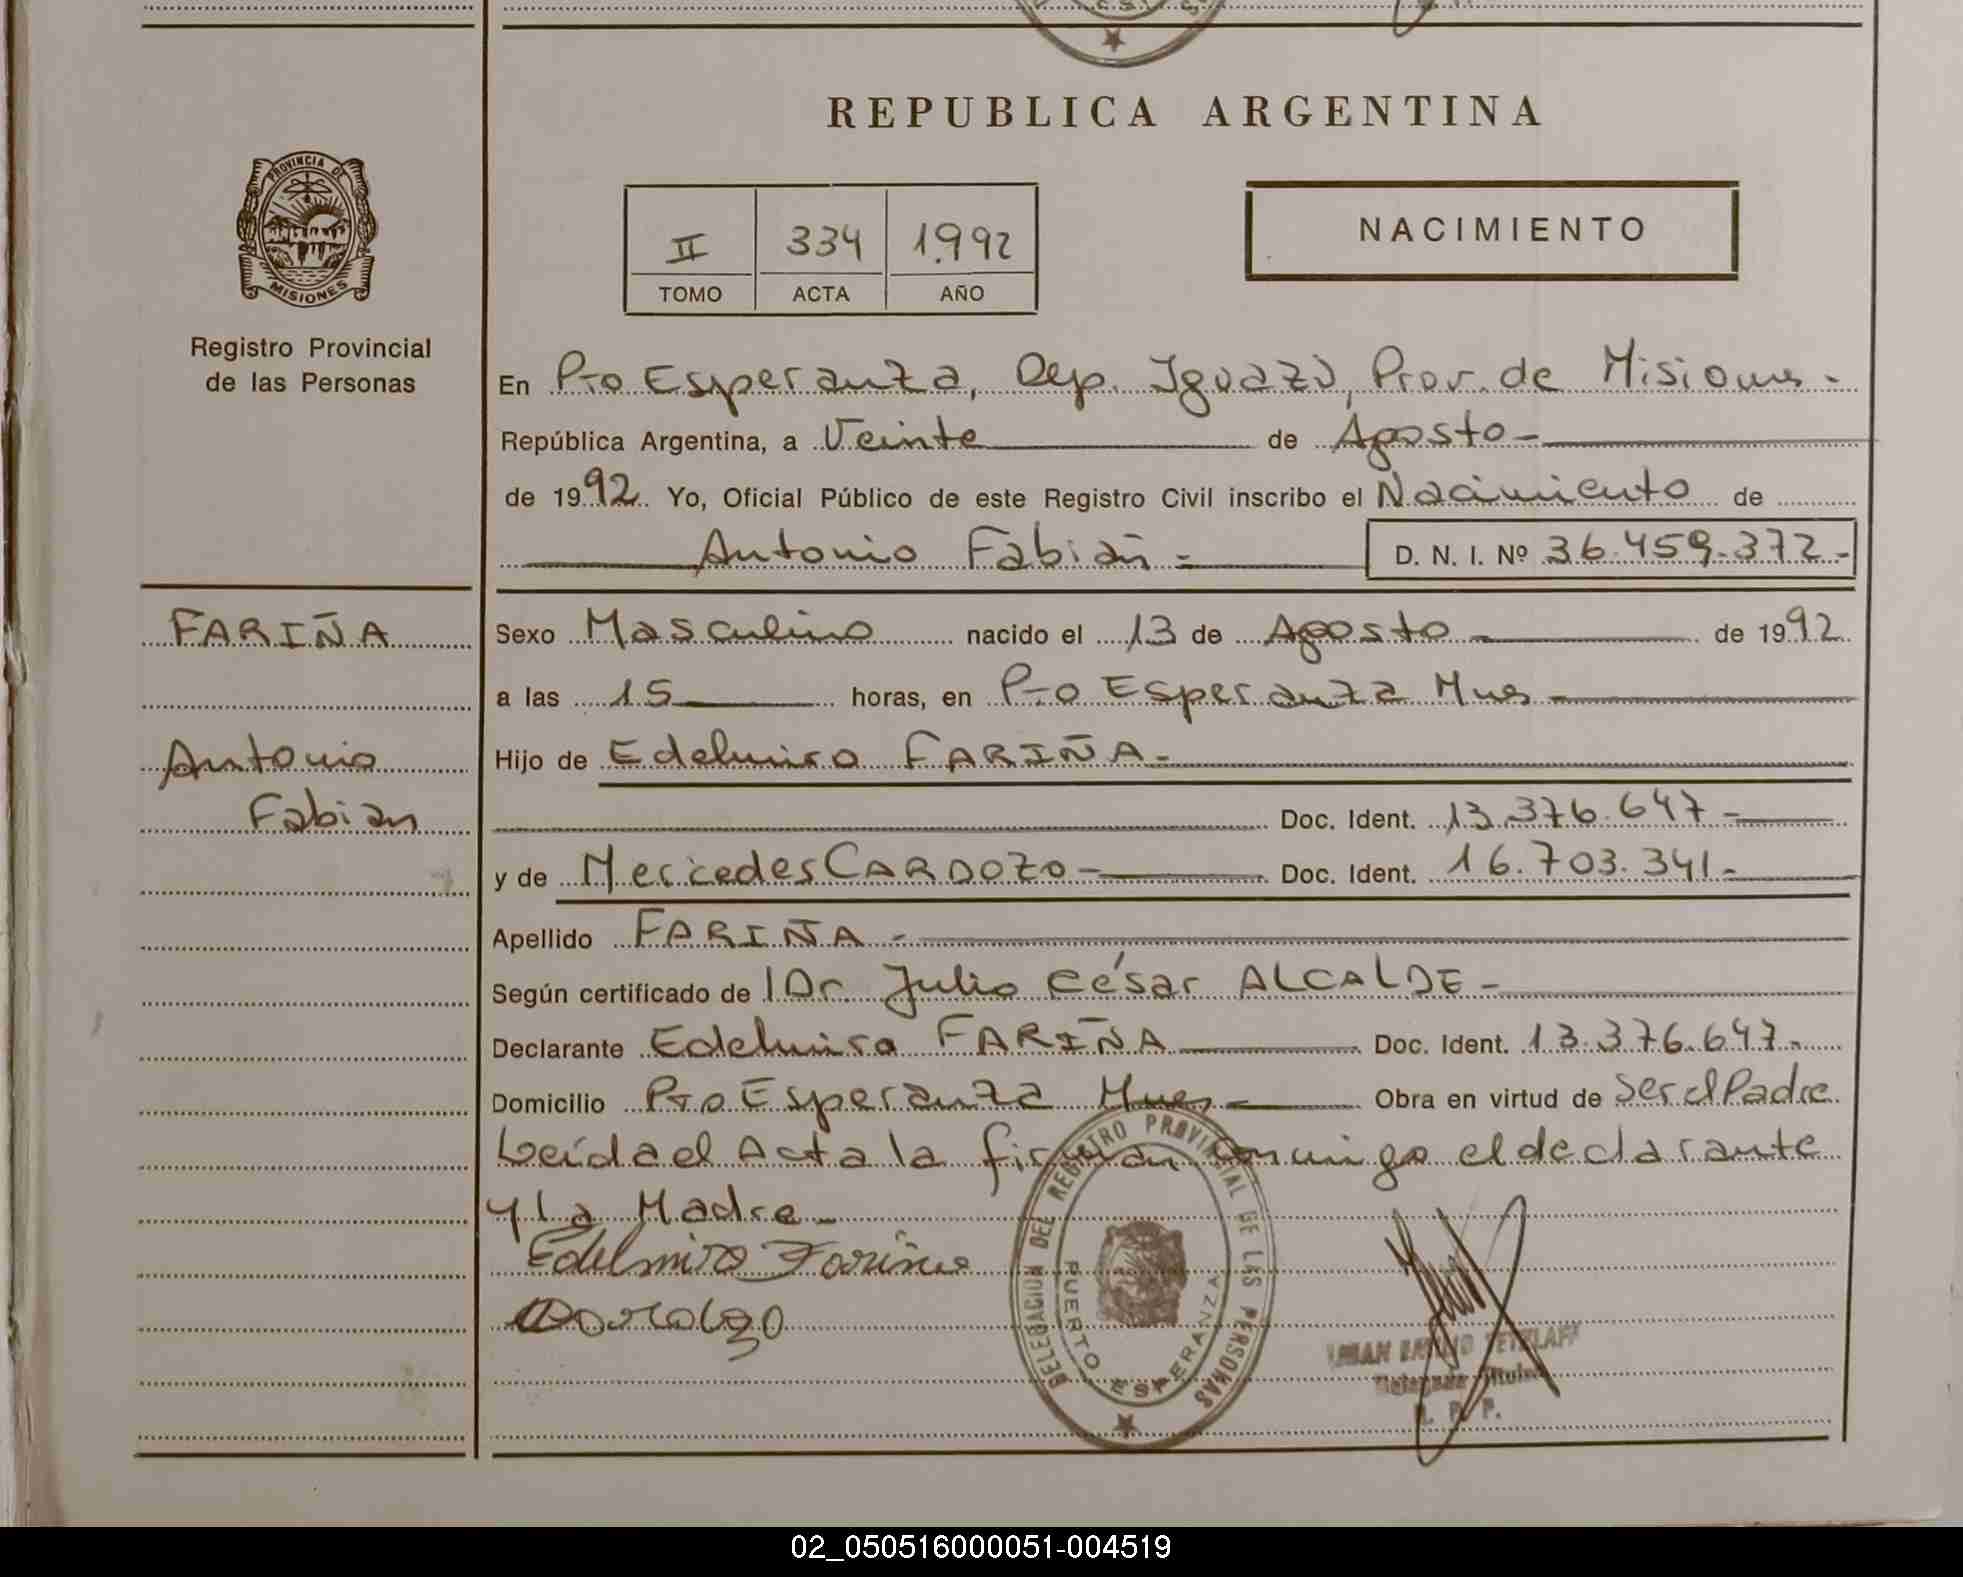 REPUBLICA ARGENTINA
PROVINCIA DE
MISIONES
Registro Provincial
de las Personas
II 334 1.992
TOMO ACTA AÑO
NACIMIENTO
En Pto Esperanza, Dep. Iguazú, Prov. de Misiones.
República Argentina, a Veinte de Agosto-
de 1992. Yo, Oficial Público de este Registro Civil inscribo el Nacimiento de
Antonio Fabian- D. N. I. Nº 36.459.372-
FARIÑA
Antonio
Fabian
Sexo Masculino nacido el 13 de Agosto- de 1992
a las 15 horas, en Pto Esperanza Mnes-
Hijo de Edelmiro FARIÑA-
Doc. Ident. 13.376.647-
y de Mercedes CARDOZO- Doc. Ident. 16.703.341-
Apellido FARIÑA-
Según certificado de Dr. Julio César ALCALDE-
Declarante Edelmiro FARIÑA Doc. Ident. 13.376.647-
Domicilio Pto Esperanza Mnes- Obra en virtud de Ser el Padre
Leída el Acta la firman conmigo el declarante
y la Madre-
Edelmiro Fariña
DELEGACION DEL REGISTRO PROVINCIAL DE LAS PERSONAS
PUERTO ESPERANZA
02_050516000051-004519